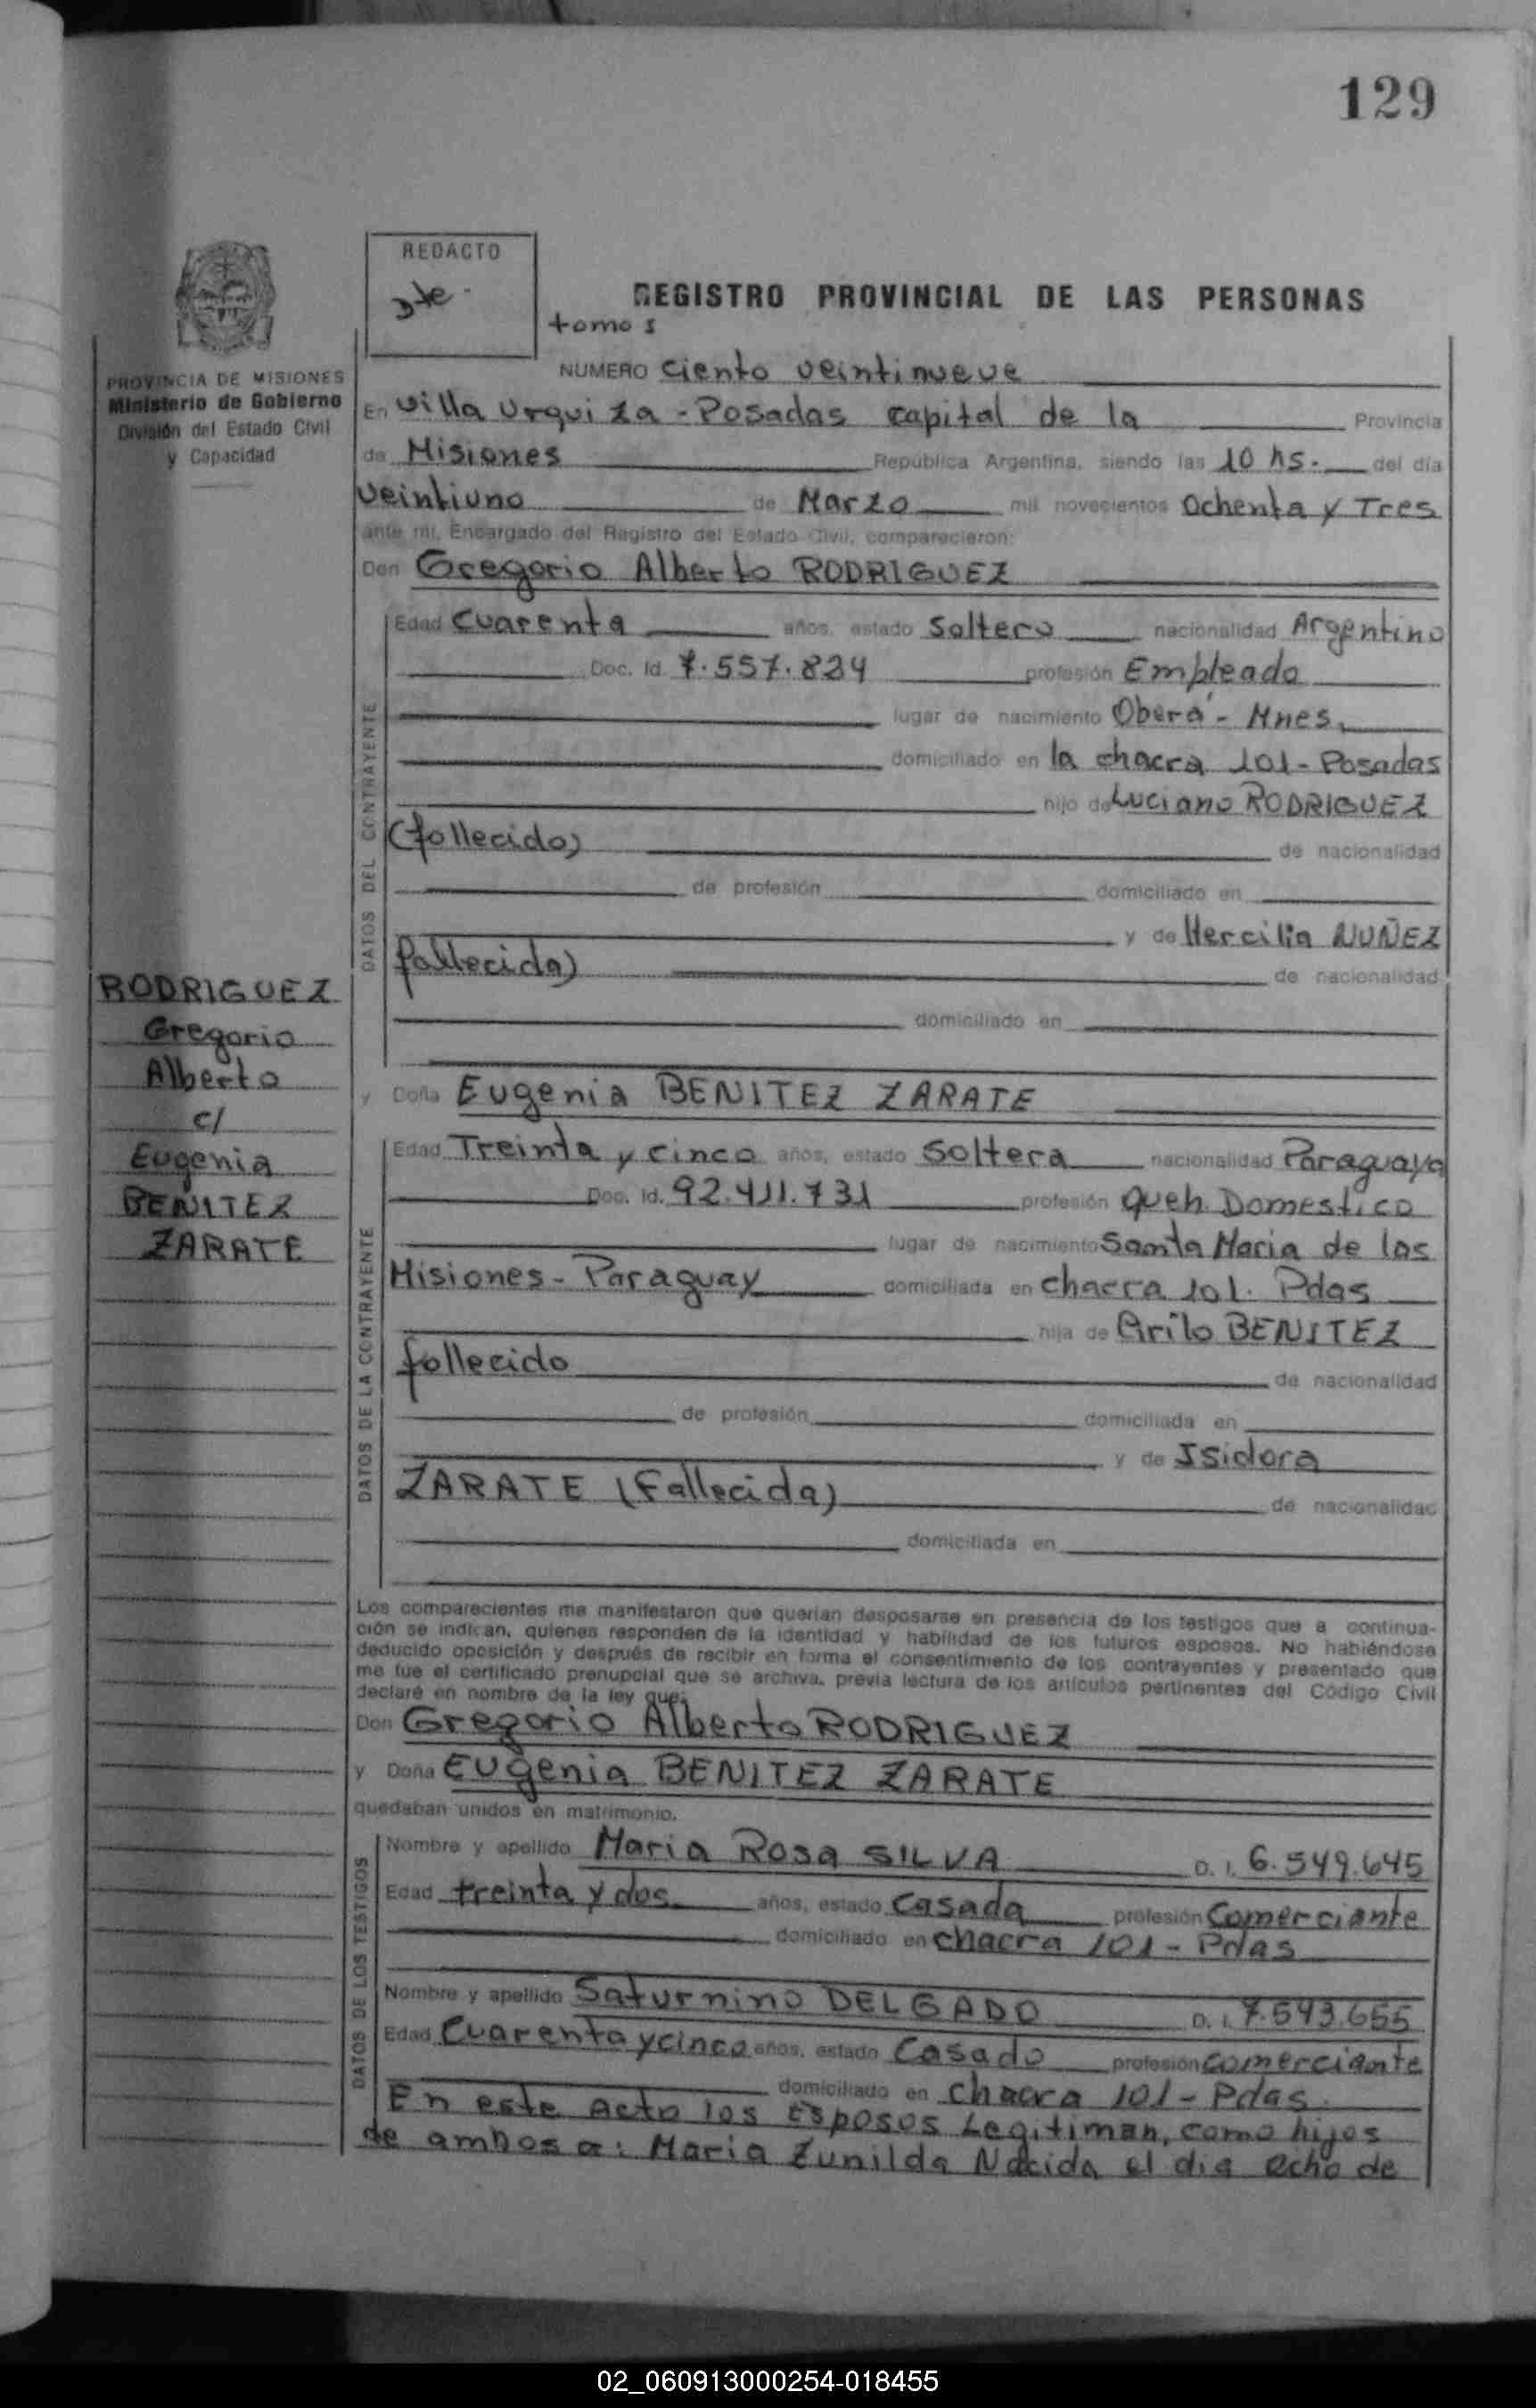 129
REDACTO
Dte.
REGISTRO PROVINCIAL DE LAS PERSONAS
tomo 1
PROVINCIA DE MISIONES
Ministerio de Gobierno
División del Estado Civil
y Capacidad
NUMERO Ciento veintinueve
En Villa Urquiza - Posadas capital de la Provincia
de Misiones República Argentina, siendo las 10 hs. del día
veintiuno de Marzo mil novecientos Ochenta y Tres
ante mí, Encargado del Registro del Estado Civil, comparecieron:
Don Gregorio Alberto RODRIGUEZ
DATOS DEL CONTRAYENTE
Edad Cuarenta años, estado Soltero nacionalidad Argentino
Doc. Id. 7.557.824 profesión Empleado
lugar de nacimiento Oberá - Mnes.
domiciliado en la chacra 101 - Posadas
hijo de Luciano RODRIGUEZ
(fallecido) de nacionalidad
de profesión domiciliado en
y de Hercilia NUÑEZ
fallecida) de nacionalidad
domiciliado en
RODRIGUEZ
Gregorio
Alberto
c/
Eugenia
BENITEZ
ZARATE
y Doña Eugenia BENITEZ ZARATE
DATOS DE LA CONTRAYENTE
Edad Treinta y cinco años, estado Soltera nacionalidad Paraguaya
Doc. Id. 92.411.731 profesión Queh. Domestico
lugar de nacimiento Santa Maria de las
Misiones - Paraguay domiciliada en chacra 101. Pdas
hija de BENITEZ
fallecido de nacionalidad
de profesión domiciliada en
y de Isidora
ZARATE (Fallecida) de nacionalidad
domiciliada en
Los comparecientes me manifestaron que querían desposarse en presencia de los testigos que a continua-
ción se indican, quienes responden de la identidad y habilidad de los futuros esposos. No habiéndose
deducido oposición y después de recibir en forma el consentimiento de los contrayentes y presentado que
me fue el certificado prenupcial que se archiva, previa lectura de los artículos pertinentes del Código Civil
declaré en nombre de la ley que:
Don Gregorio Alberto RODRIGUEZ
y Doña Eugenia BENITEZ ZARATE
quedaban unidos en matrimonio.
DATOS DE LOS TESTIGOS
Nombre y apellido Maria Rosa SILVA D. I. 6.549.645
Edad treinta y dos años, estado Casada profesión Comerciante
domiciliado en chacra 101 - Pdas
Nombre y apellido Saturnino DELGADO D. I. 7.543.655
Edad Cuarenta y cinco años, estado Casado profesión comerciante
domiciliado en chacra 101 - Pdas.
En este Acto los Esposos Legitiman, como hijos
de ambos a: Maria Zunilda Nacida el dia ocho de
02_060913000254-018455